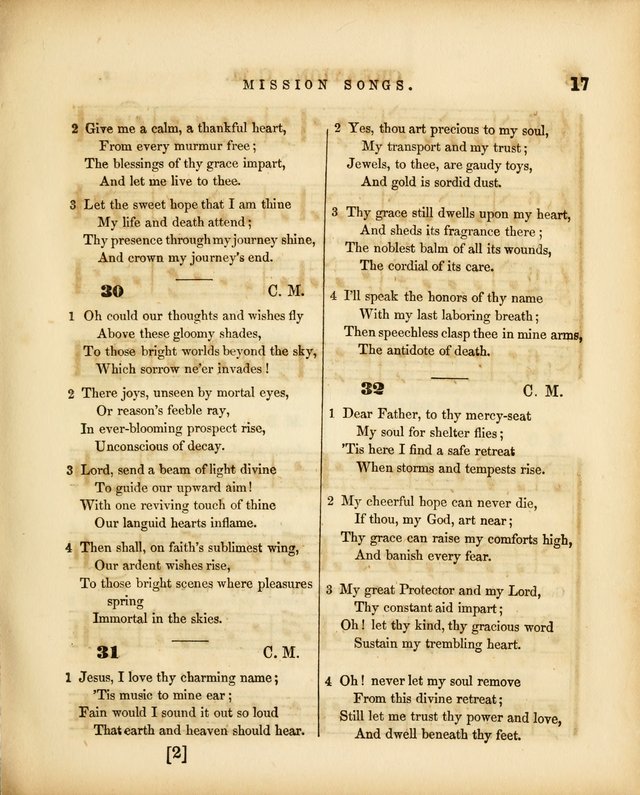 MISSION SONGS. 17
2 Give me a calm, a thankful heart,
From every murmur free;
The blessings of thy grace impart,
And let me live to thee.
3 Let the sweet hope that I am thine
My life and death attend;
Thy presence through my journey shine,
And crown my journey's end.
30 C. M.
1 Oh could our thoughts and wishes fly
Above these gloomy shades,
To those bright worlds beyond the sky,
Which sorrow ne'er invades!
2 There joys, unseen by mortal eyes,
Or reason's feeble ray,
In ever-blooming prospect rise,
Unconscious of decay.
3 Lord, send a beam of light divine
To guide our upward aim!
With one reviving touch of thine
Our languid hearts inflame.
4 Then shall, on faith's sublimest wing,
Our ardent wishes rise,
To those bright scenes where pleasures
spring
Immortal in the skies.
31 C. M.
1 Jesus, I love thy charming name;
'Tis music to mine ear;
Fain would I sound it out so loud
That earth and heaven should hear.
2 Yes, thou art precious to my soul,
My transport and my trust;
Jewels, to thee, are gaudy toys,
And gold is sordid dust.
3 Thy grace still dwells upon my heart,
And sheds its fragrance there;
The noblest balm of all its wounds,
The cordial of its care.
4 I'll speak the honors of thy name
With my last laboring breath;
Then speechless clasp thee in mine arms,
The antidote of death.
32 C. M.
1 Dear Father, to thy mercy-seat
My soul for shelter flies;
'Tis here I find a safe retreat
When storms and tempests rise.
2 My cheerful hope can never die,
If thou, my God, art near;
Thy grace can raise my comforts high,
And banish every fear.
3 My great Protector and my Lord,
Thy constant aid impart;
Oh! let thy kind, thy gracious word
Sustain my trembling heart.
4 Oh! never let my soul remove
From this divine retreat;
Still let me trust thy power and love,
And dwell beneath thy feet.
[2]